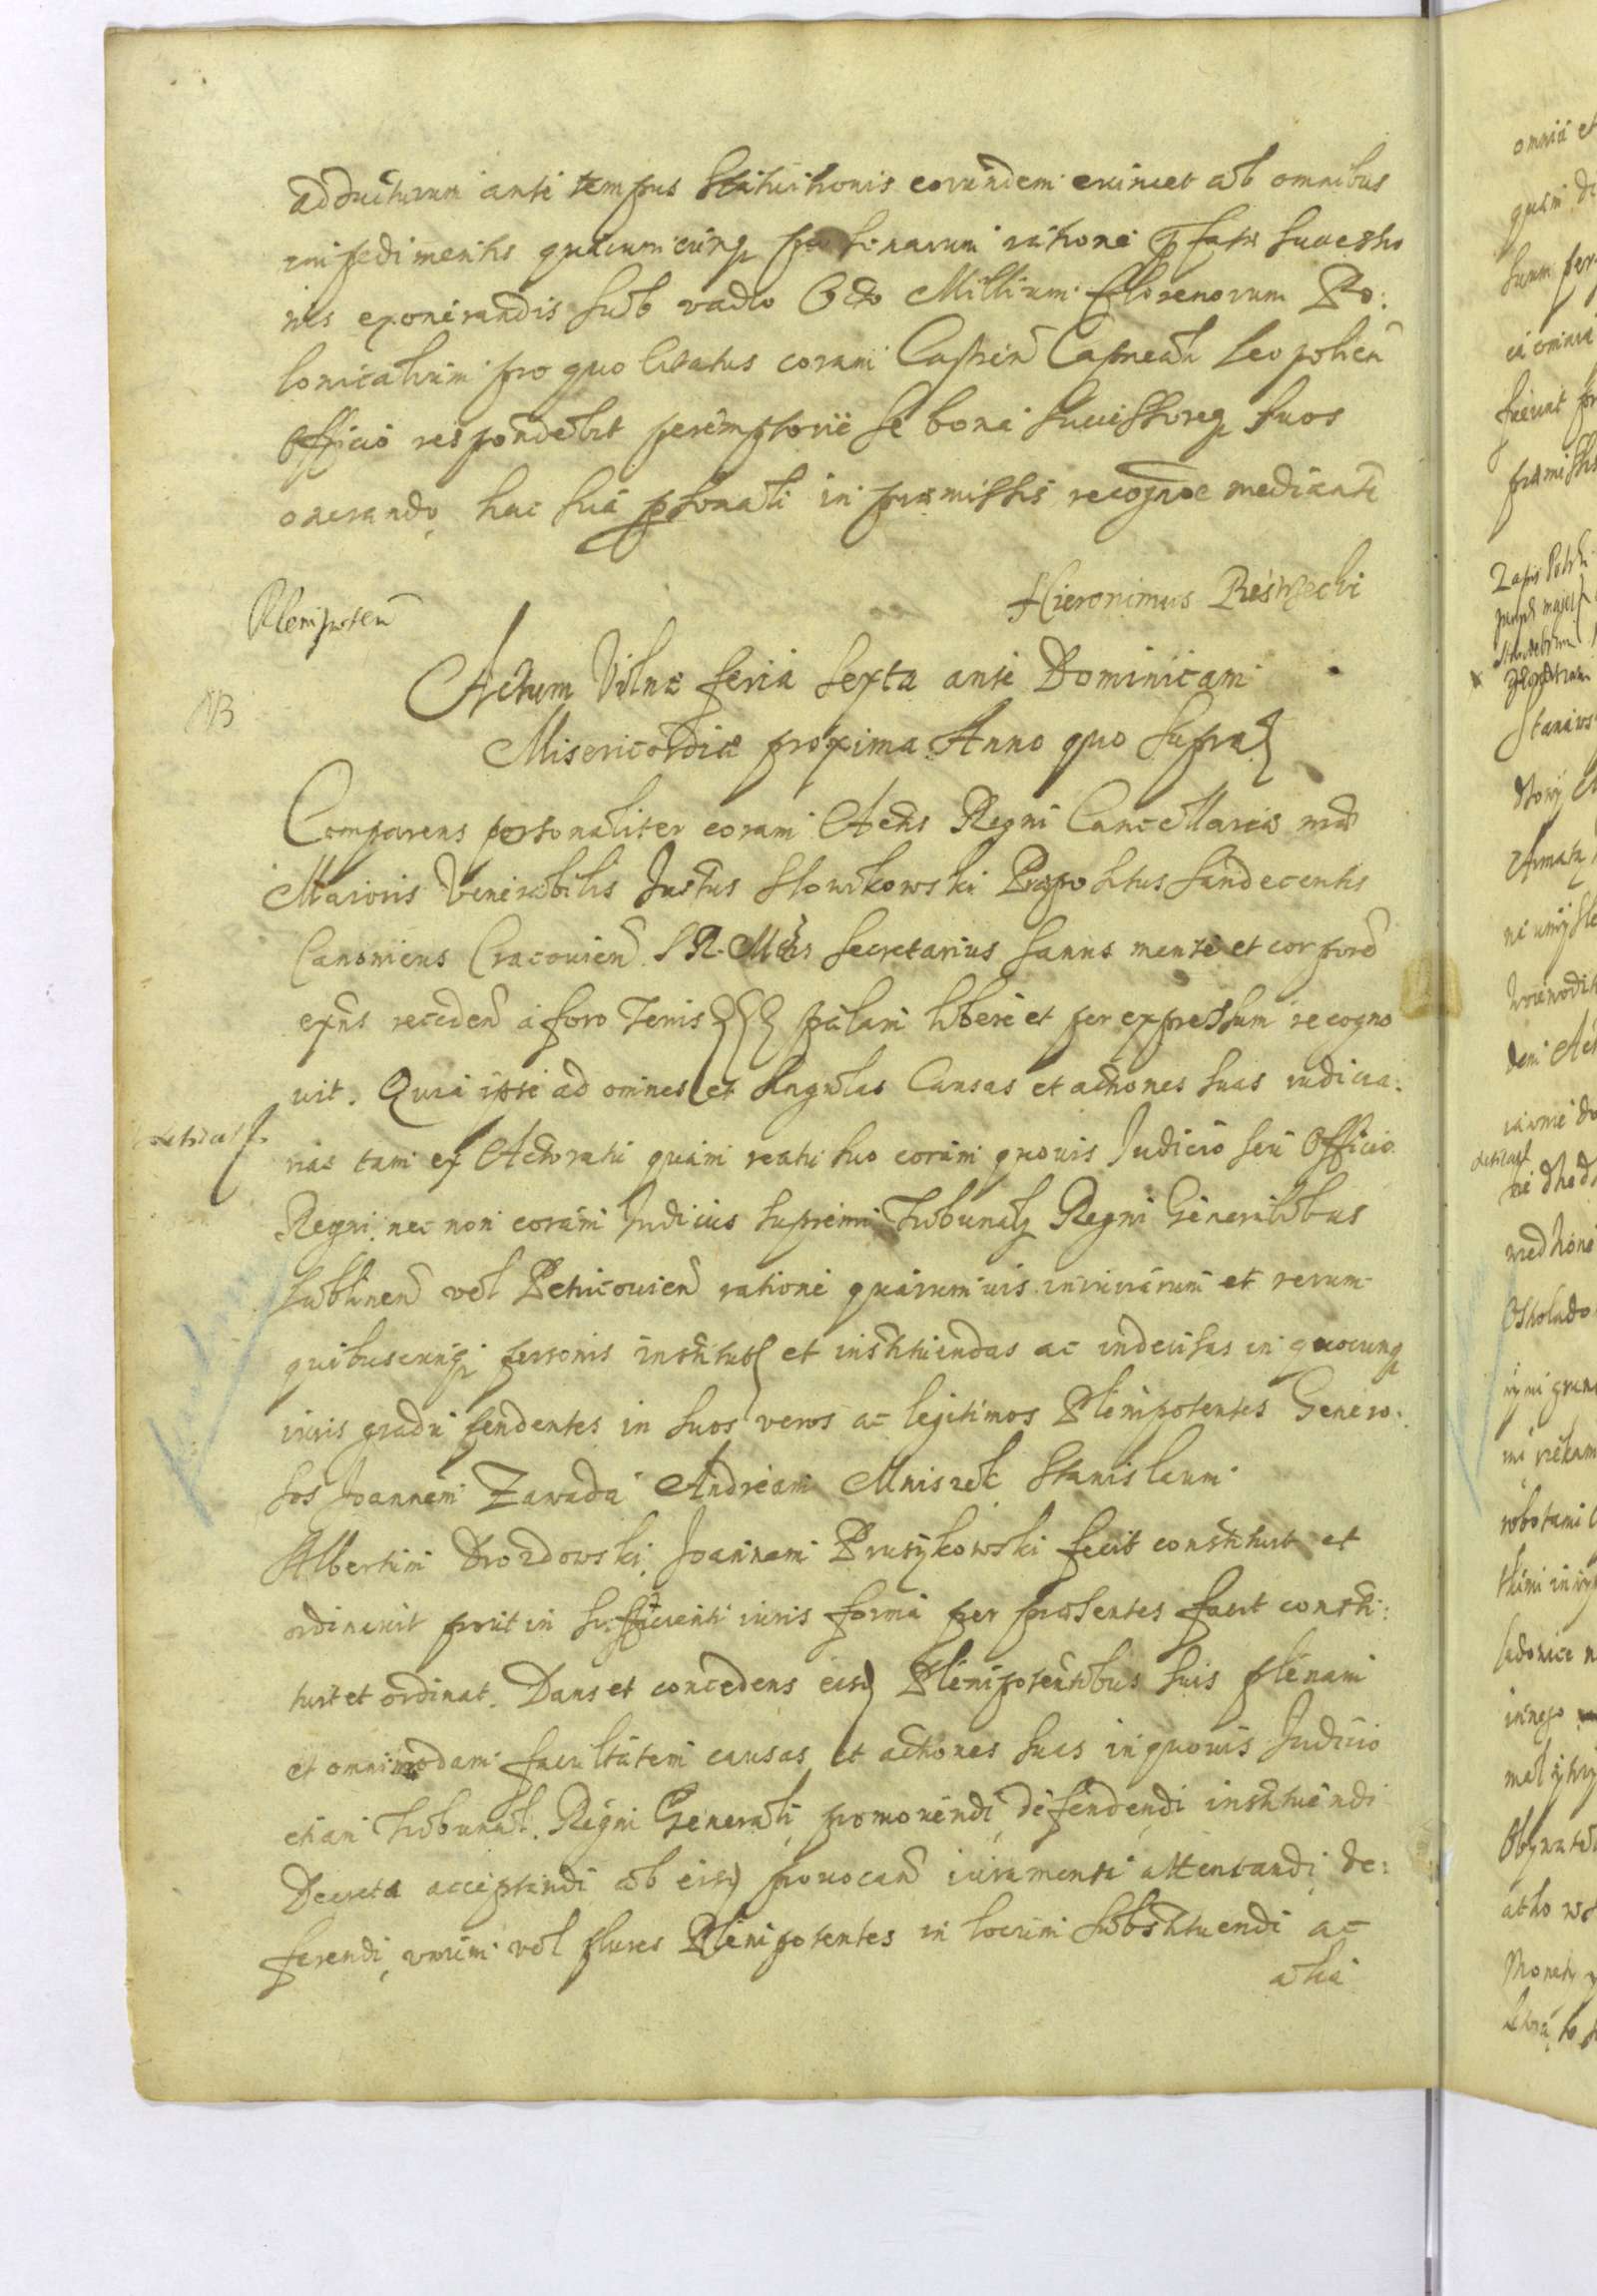 adducturum ante tempus Statuitionis eorundem evincet ab omnibus
impedimentis quarumcunq personarum ratione pfatae successio
nis exonerandis sub vadio Octo Millium Florenorum Po:
lonicalium pro quo citatus coram Castren Capneali Leopolien
Officio respondebit peremptorie se bona successoresq suos
onerando, hac sua psonali in praemissis recognoe mediante
Hieronimus Restrzecki
Plenipoten
Actum Vilnae feria sexta ante Dominicam
NB
Misericordiae proxima Anno quo supra
Comparens personaliter coram Actis Regni Cancellariae mad
Maioris Venerabilis Justus Slowikowski Praepositus Sandecensis
Canonicus Cracovien S R Mtis Secretarius sanus mente et corpore
exns receden a foro Terris palam libere et per expressum recogno
vit. Quia ipse ad omnes et singulas Causas et actiones suas iudicia:
rias tam ex Actoratu quam reatu suo coram quovis Judicio seu Officio
Regni nec non coram Judiciis supremi Tribunal Regni Generalibus
Lublinen vel Petricovien ratione quarumvis iniuriarum et rerum
quibuscunq personis institut et instituendas ac indecisas in quocunq
iuris gradu pendentes in suos veros ac legitimos Plenipotentes Genero:
sos Joannem Zawada Andream Mniszek Stanislaum
Albertum Drozdowski, Joannem Pruszkowski fecit constituit et
ordinavit prout in sufficienti iuris forma per praesentes facit consti:
tuit et ordinat. Dans et concedens eisd Plenipotentibus suis plenam
et omnimodam facultatem causas et actiones suas in quovis Judicio
etiam Tribunal. Regni Generali, promovendi, defendendi instituendi
Decreta acceptandi ab eisd provocand iuramenta attentandi, de:
ferendi, unum vel plures Plenipotentes in locum substituendi ac
alia